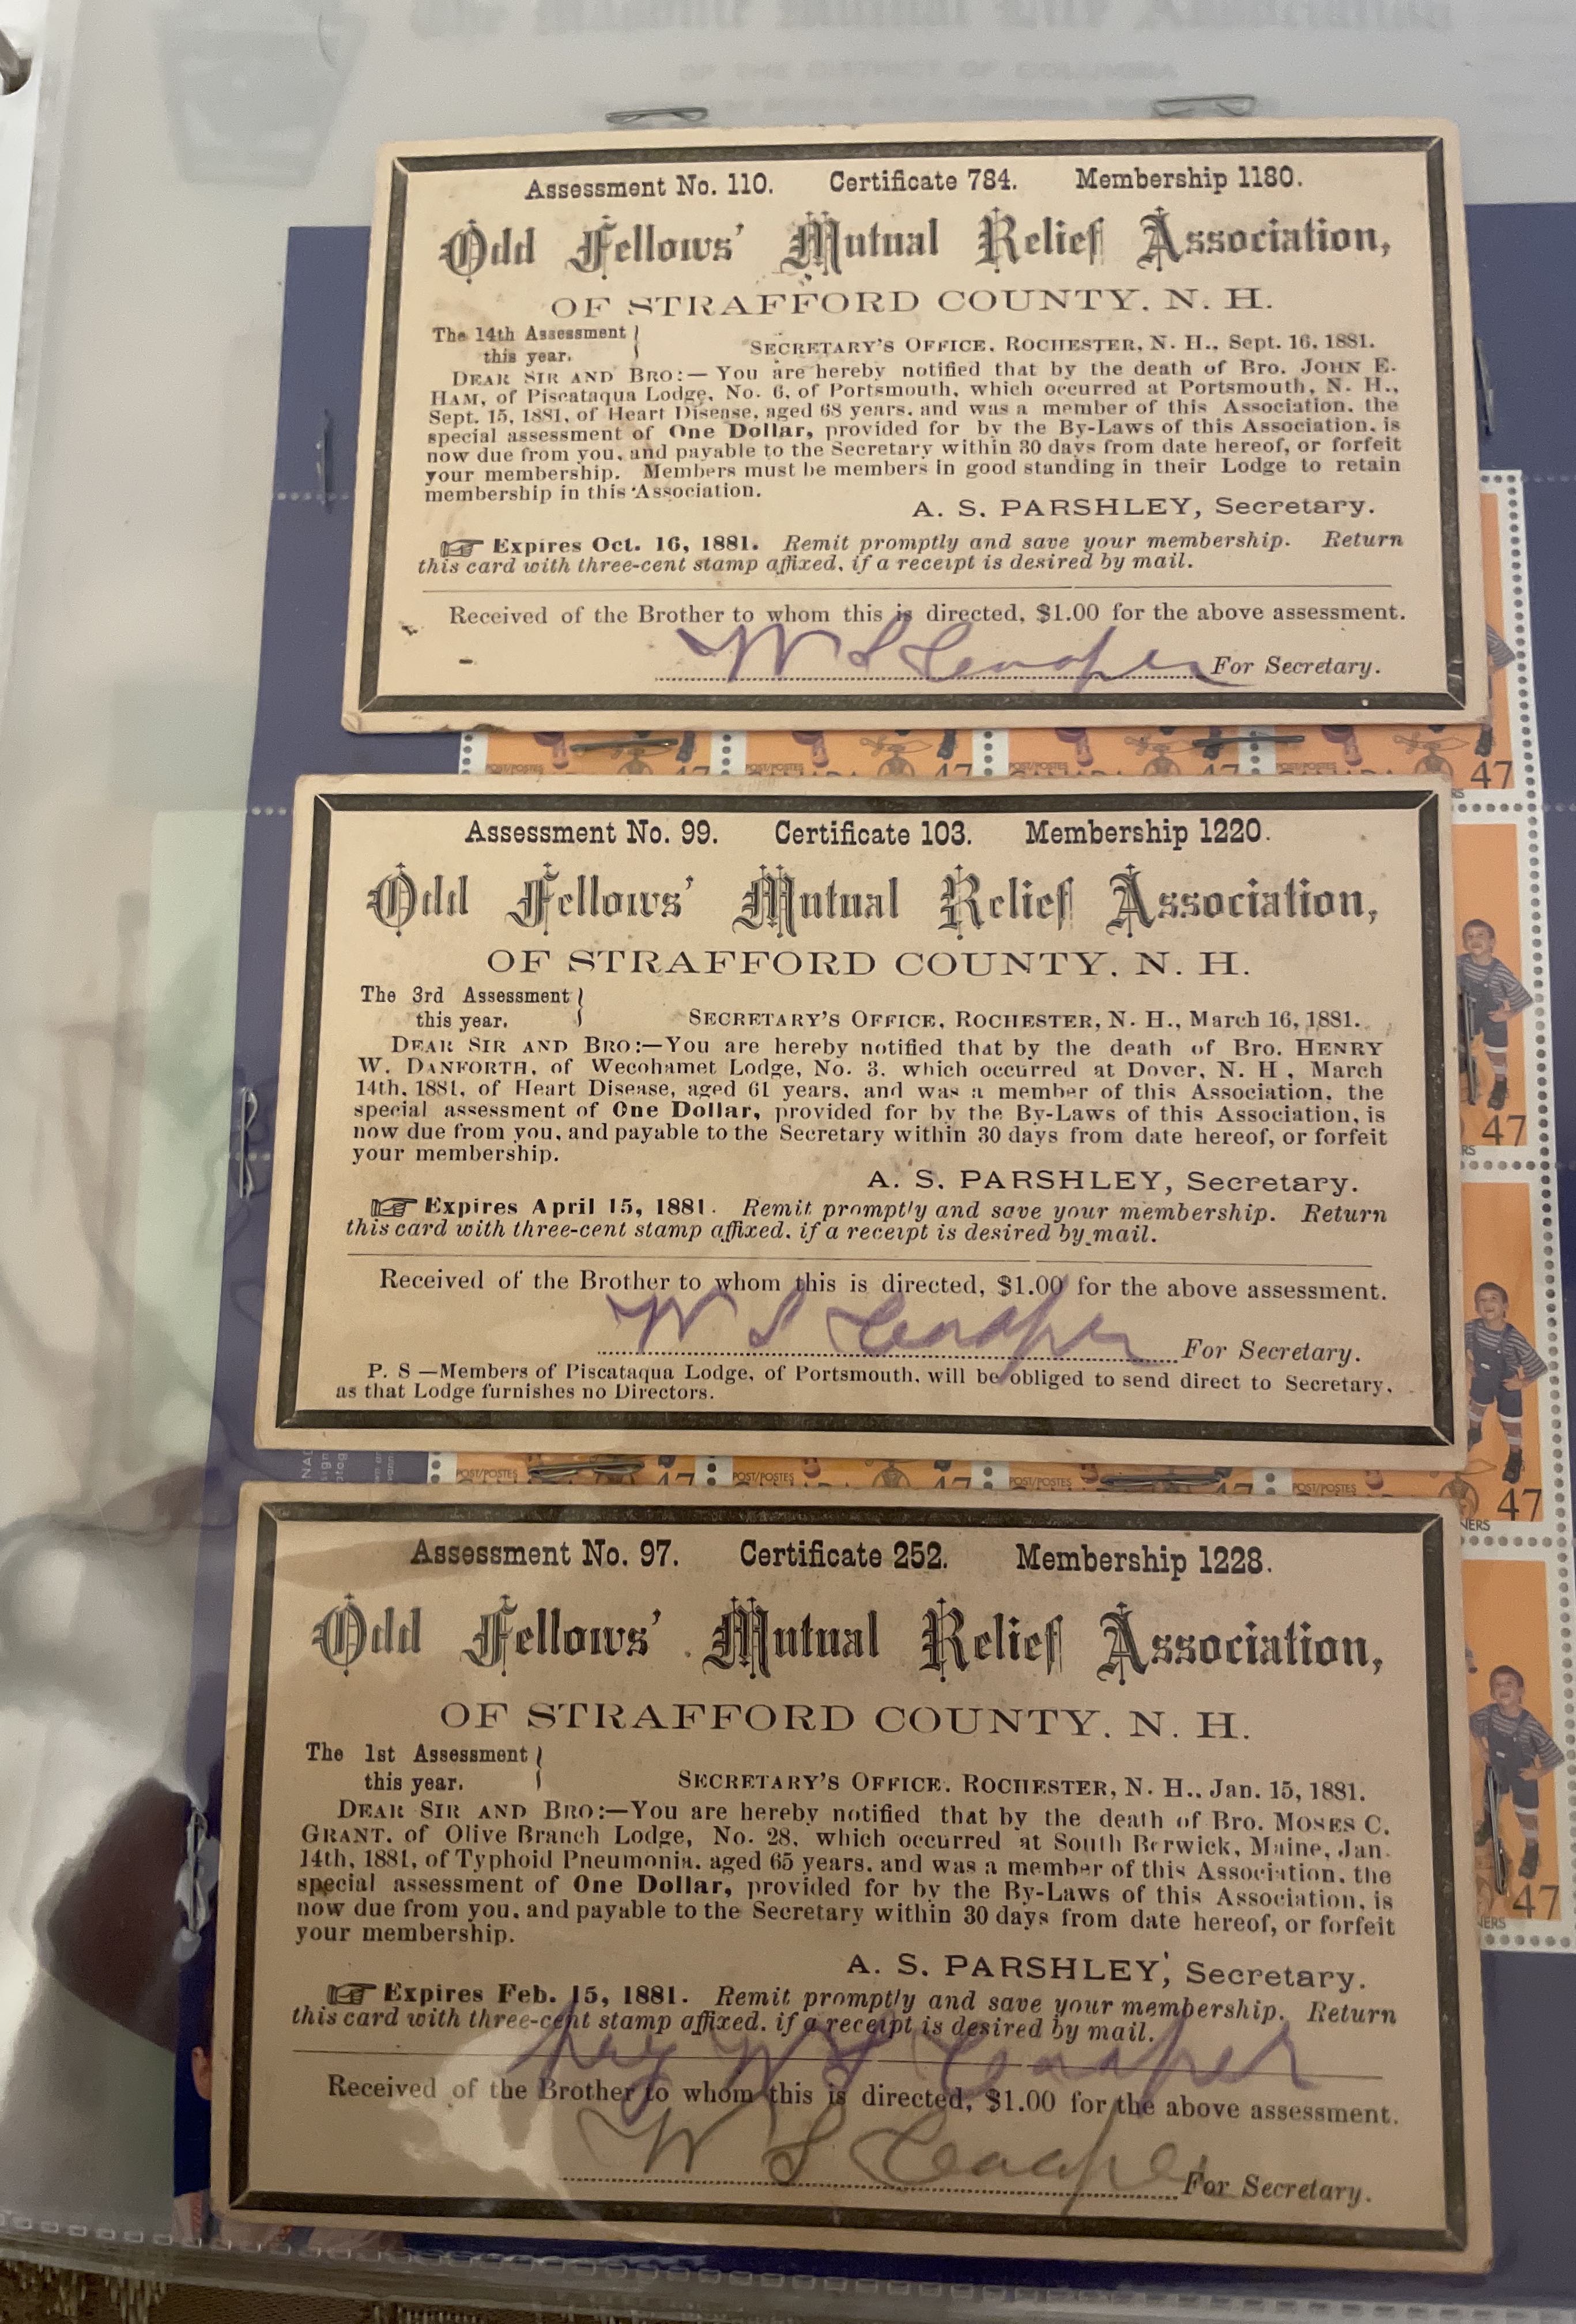 OF THE DISTRICT OF COLUMBIA
Assessment No. 110. Certificate 784. Membership 1180.
Odd Fellows' Mutual Relief Association,
OF STRAFFORD COUNTY, N. H.
The 14th Assessment
this year.
SECRETARY'S OFFICE, ROCHESTER, N. H., Sept. 16, 1881.
DEAR SIR AND BRO:— You are hereby notified that by the death of Bro. JOHN E.
HAM, of Piscataqua Lodge, No. 6, of Portsmouth, which occurred at Portsmouth, N. H.,
Sept. 15, 1881, of Heart Disease, aged 68 years, and was a member of this Association, the
special assessment of One Dollar, provided for by the By-Laws of this Association, is
now due from you, and payable to the Secretary within 30 days from date hereof, or forfeit
your membership. Members must be members in good standing in their Lodge to retain
membership in this Association.
A. S. PARSHLEY, Secretary.
Expires Oct. 16, 1881. Remit promptly and save your membership. Return
this card with three-cent stamp affixed, if a receipt is desired by mail.
Received of the Brother to whom this is directed, $1.00 for the above assessment.
W S For Secretary.
POST/POSTES POST/POSTES POST/POSTES POST/POSTES
CANADA 47 CANADA 47 CANADA 47 CANADA 47
Assessment No. 99. Certificate 103. Membership 1220.
Odd Fellows' Mutual Relief Association,
OF STRAFFORD COUNTY, N. H.
The 3rd Assessment
this year.
SECRETARY'S OFFICE, ROCHESTER, N. H., March 16, 1881.
DEAR SIR AND BRO:—You are hereby notified that by the death of Bro. HENRY
W. DANFORTH, of Wecohamet Lodge, No. 3, which occurred at Dover, N. H , March
14th, 1881, of Heart Disease, aged 61 years, and was a member of this Association, the
special assessment of One Dollar, provided for by the By-Laws of this Association, is
now due from you, and payable to the Secretary within 30 days from date hereof, or forfeit
your membership.
A. S. PARSHLEY, Secretary.
Expires April 15, 1881. Remit promptly and save your membership. Return
this card with three-cent stamp affixed, if a receipt is desired by mail.
Received of the Brother to whom this is directed, $1.00 for the above assessment.
W S For Secretary.
P. S —Members of Piscataqua Lodge, of Portsmouth, will be obliged to send direct to Secretary,
as that Lodge furnishes no Directors.
47
47
POST/POSTES POST/POSTES POST/POSTES POST/POSTES
47 47 47 47
Assessment No. 97. Certificate 252. Membership 1228.
Odd Fellows' Mutual Relief Association,
OF STRAFFORD COUNTY, N. H.
The 1st Assessment
this year.
SECRETARY'S OFFICE, ROCHESTER, N. H.. Jan. 15, 1881.
DEAR SIR AND BRO:—You are hereby notified that by the death of Bro. MOSES C.
GRANT, of Olive Branch Lodge, No. 28, which occurred at South Berwick, Maine, Jan.
14th, 1881, of Typhoid Pneumonia, aged 65 years, and was a member of this Association, the
special assessment of One Dollar, provided for by the By-Laws of this Association, is
now due from you, and payable to the Secretary within 30 days from date hereof, or forfeit
your membership.
A. S. PARSHLEY, Secretary.
Expires Feb. 15, 1881. Remit promptly and save your membership. Return
this card with three-cent stamp affixed, if a receipt is desired by mail.
Pay W S
Received of the Brother to whom this is directed, $1.00 for the above assessment.
W S For Secretary.
47